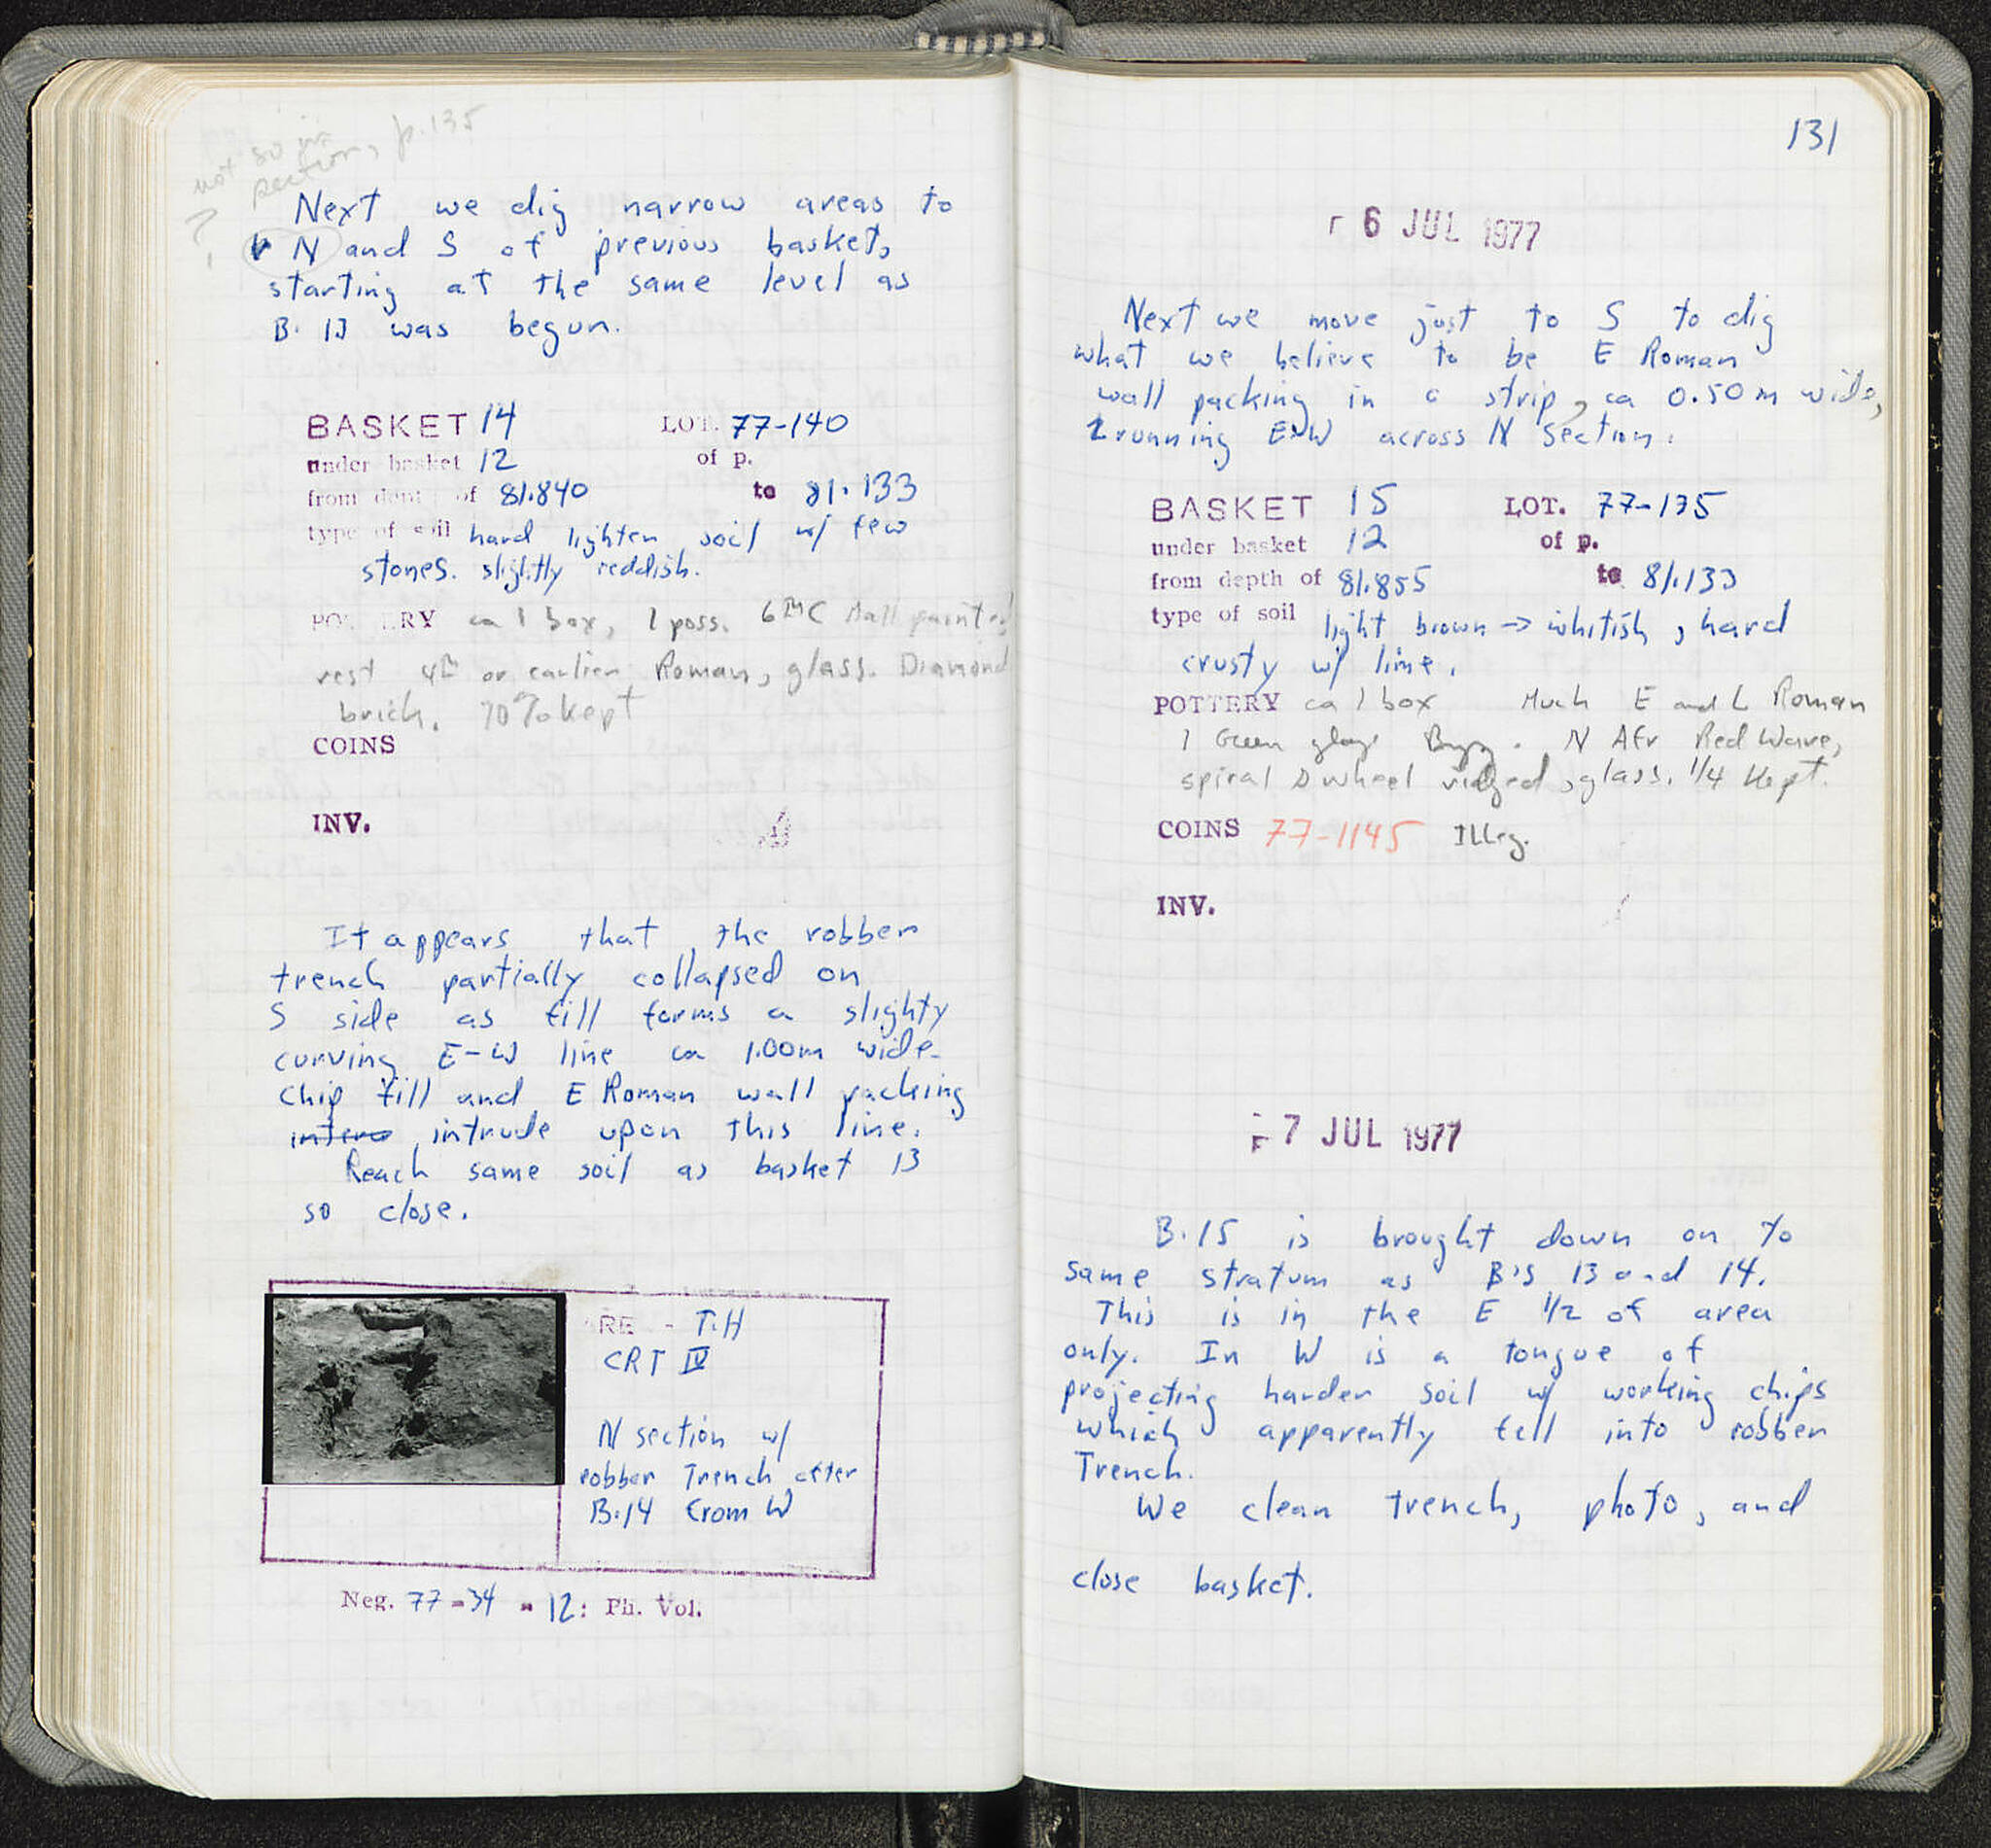 not so in
section, p. 135
?
Next we dig narrow areas to
N and S of previous basket,
starting at the same level as
B. 13 was begun.
BASKET 14 LOT. 77-140
under basket 12 of p.
from dept of 81.840 to 81.133
type of soil hard lighter soil w/ few
stones. slightly reddish.
POTTERY ca 1 box, 1 poss. 6th C Matt painted
rest 4th or earlier Roman, glass. Diamond
brick. 70% kept
COINS
INV.
It appears that the robber
trench partially collapsed on
S side as fill forms a slighty
curving E-W line ca 1.00m wide.
Chip fill and E Roman wall packing
inters intrude upon this line.
Reach same soil as basket 13
so close.
RE - T.H
CRT IV
N section w/
robber Trench after
B.14 from W
Neg. 77-34-12: Ph. Vol.
131
6 JUL 1977
Next we move just to S to dig
what we believe to be E Roman
wall packing in a strip, ca 0.50m wide,
running E-W across N section.
BASKET 15 LOT. 77-135
under basket 12 of p.
from depth of 81.855 to 81.133
type of soil light brown -> whitish, hard
crusty w/ lime.
POTTERY ca 1 box Much E and L Roman
1 Green glaze Byz. N Afr Red Ware,
spiral wheel ridged, glass. 1/4 kept.
COINS 77-1145 Illeg.
INV.
7 JUL 1977
B.15 is brought down on to
same stratum as B's 13 and 14.
This is in the E 1/2 of area
only. In W is a tongue of
projecting harder soil w/ working chips
which apparently fell into robber
Trench.
We clean trench, photo, and
close basket.